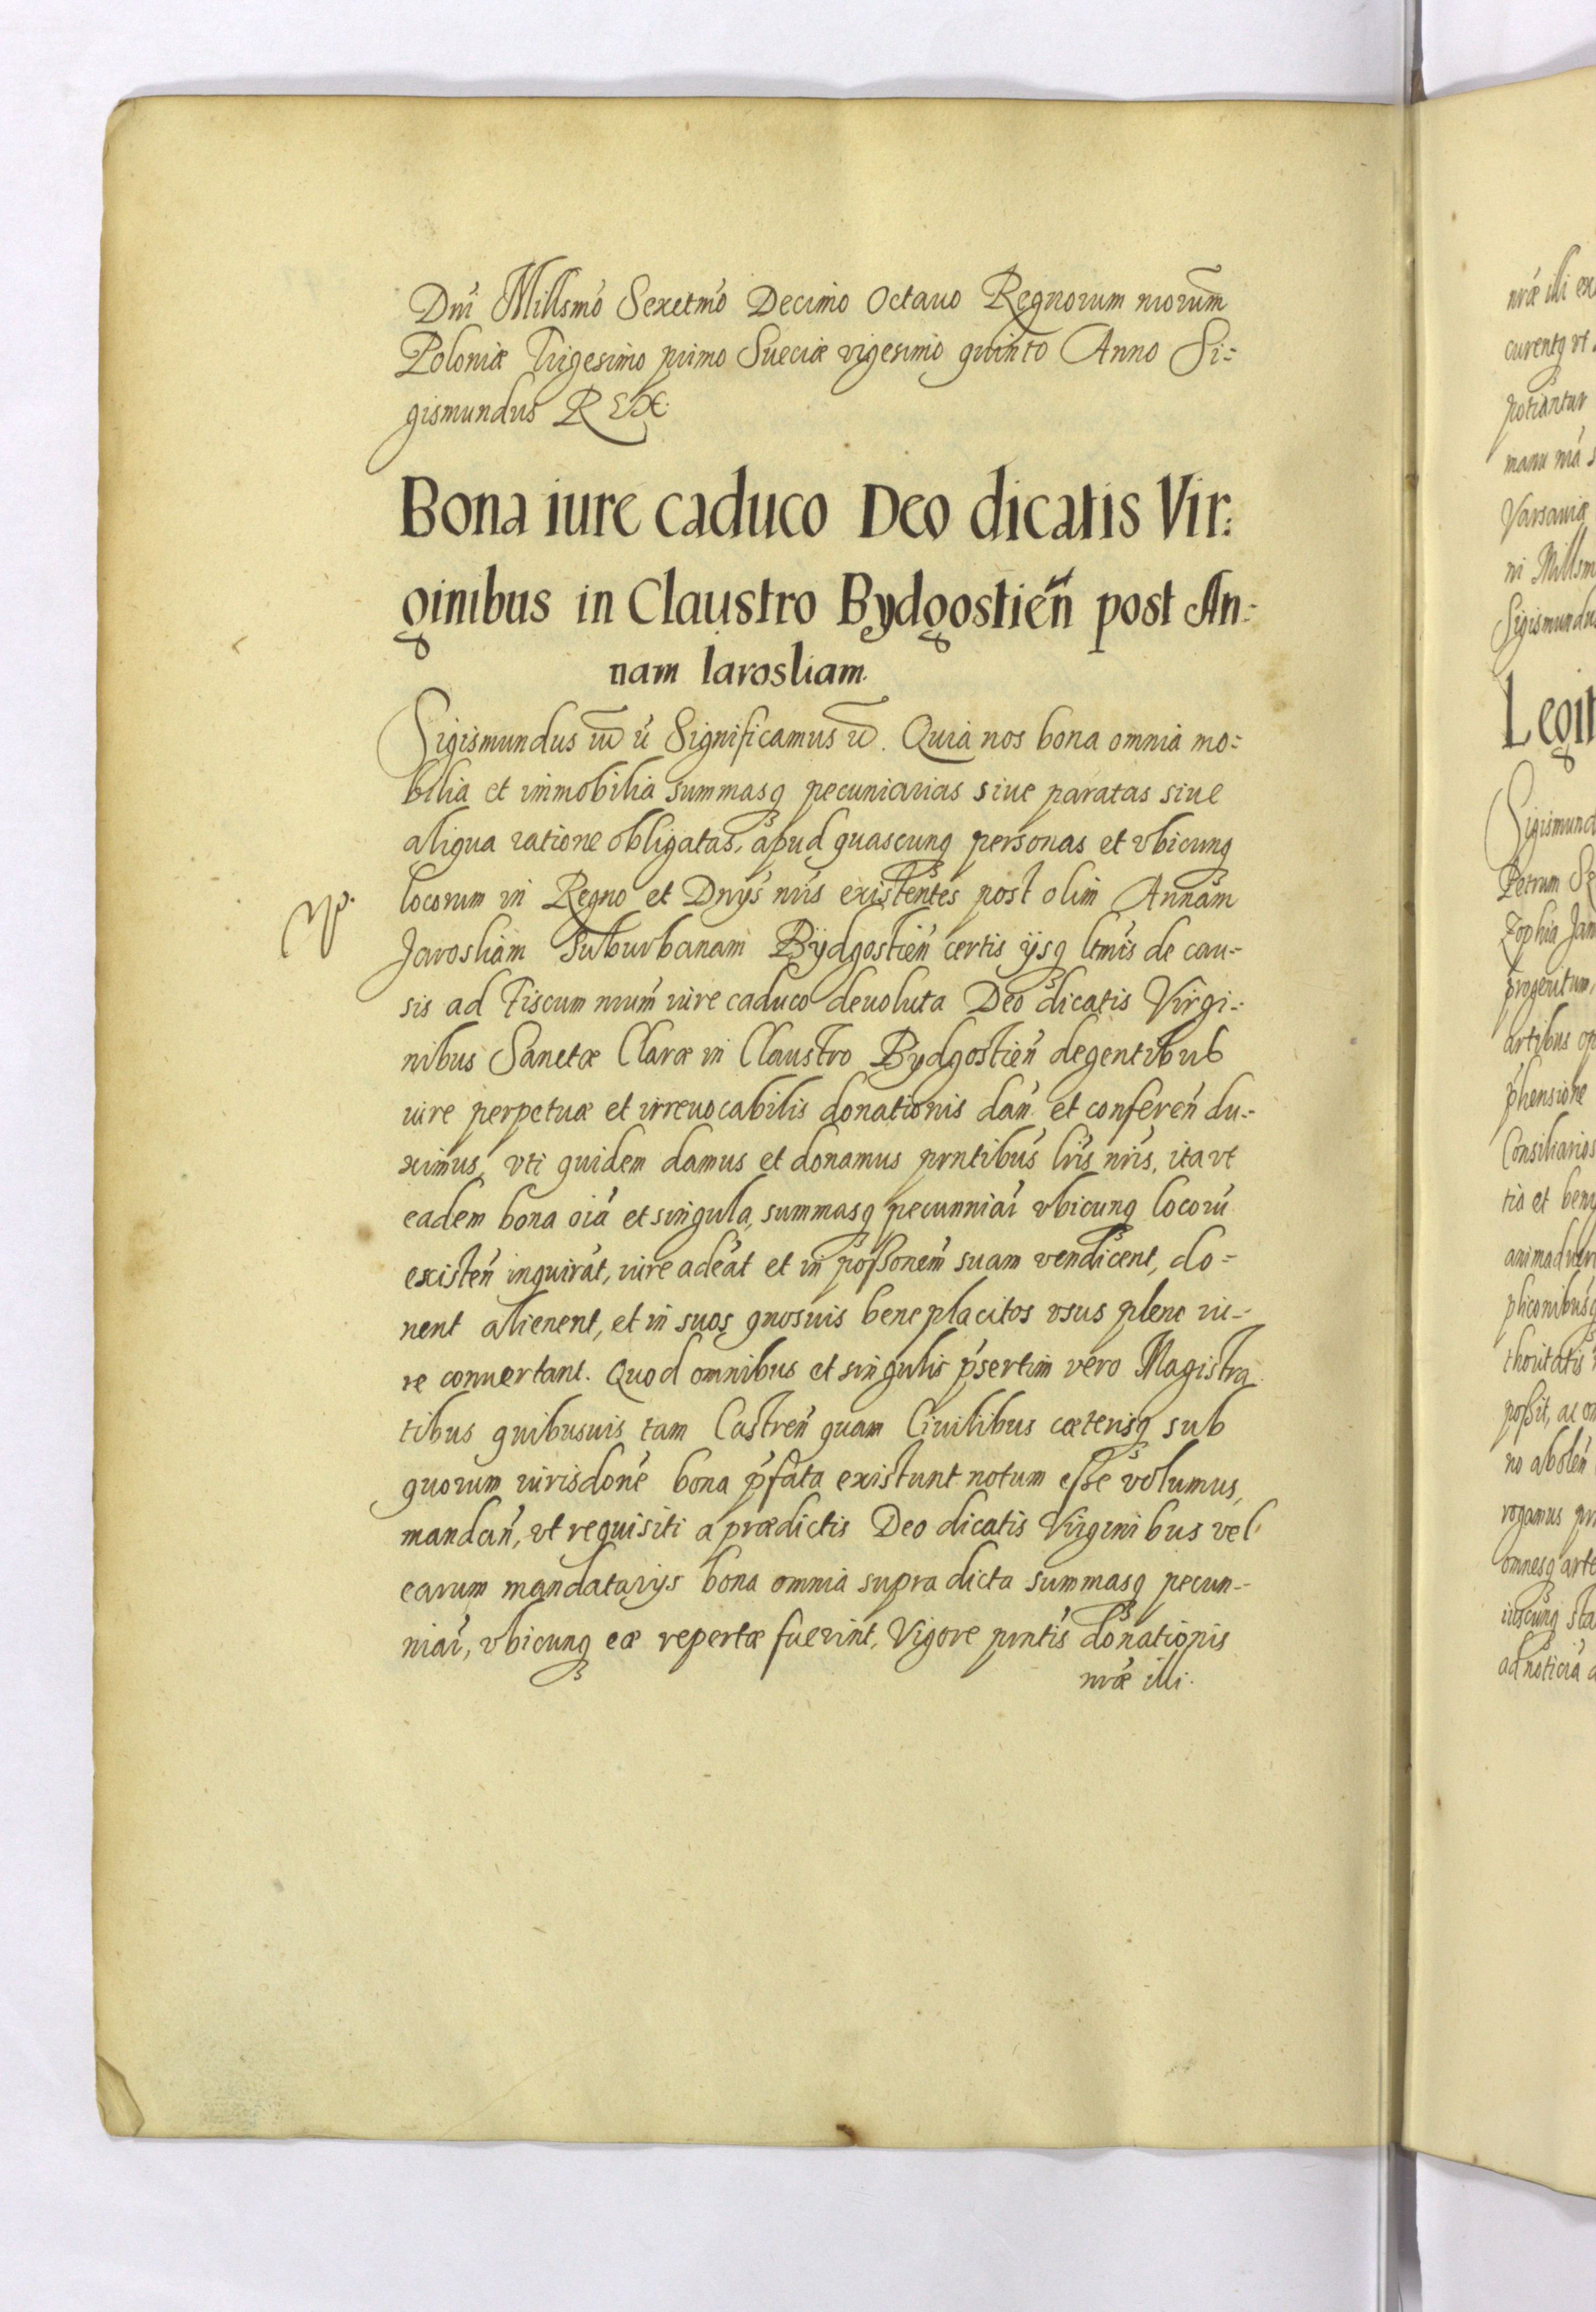 Dni Millsmo Sexctmo Decimo Octauo Regnorum nrorum
Poloniæ Trigesimo primo Sueciæ vigesimo quinto Anno Si-
gismundus REX.
Bona iure caduco Deo dicatis Vir-
ginibus in Claustro Bydgostien̄ post An-
nam Iarosliam.
Sigismundus Significamus. Quia nos bona omnia mo-
bilia et immobilia summasq pecuniarias siue paratas siue
aliqua ratione obligatas, apud quascunq personas et vbicunq
locorum in Regno et Dnijs nris existentes post olim Annam
Jarosliam Suburbanam Bydgostien̄ certis ijsq ltmis de cau-
sis ad Fiscum nrum iure caduco deuoluta Deo dicatis Virgi-
nibus Sanctæ Claræ in Claustro Bydgostien̄ degentibus
iure perpetuæ et irreuocabilis donationis dan̄ et conferen̄ du-
ximus, vti quidem damus et donamus prntibus lris nris, ita vt
eadem bona oia et singula, summasq pecunniai vbicunq locoru
existen̄ inquirāt, iure adeāt et in poßonem suam vendicent, do-
nent alienent, et in suos quosuis bene placitos vsus pleno iu-
re conuertant. Quod omnibus et singulis p̄sertim vero Magistra
tibus quibusuis tam Castren̄ quam Ciuilibus cæterisq sub
quorum iurisdone bona p̄fata existunt notum eße volumus,
mandan̄, vt requisiti a prædictis Deo dicatis Virginibus vel
earum mandatarijs bona omnia supra dicta summasq pecun-
niai, vbicunq eæ repertæ fuerint, Vigore prntis donationis
nræ illi.
nræ illi
potiantur
manu
Varsauiæ
ni Millsm
Legit
Sigismund
Petrum
Zophia
artibus
phensione
Consiliarios
tia et
thoritatis
poßit, ac
rogamus